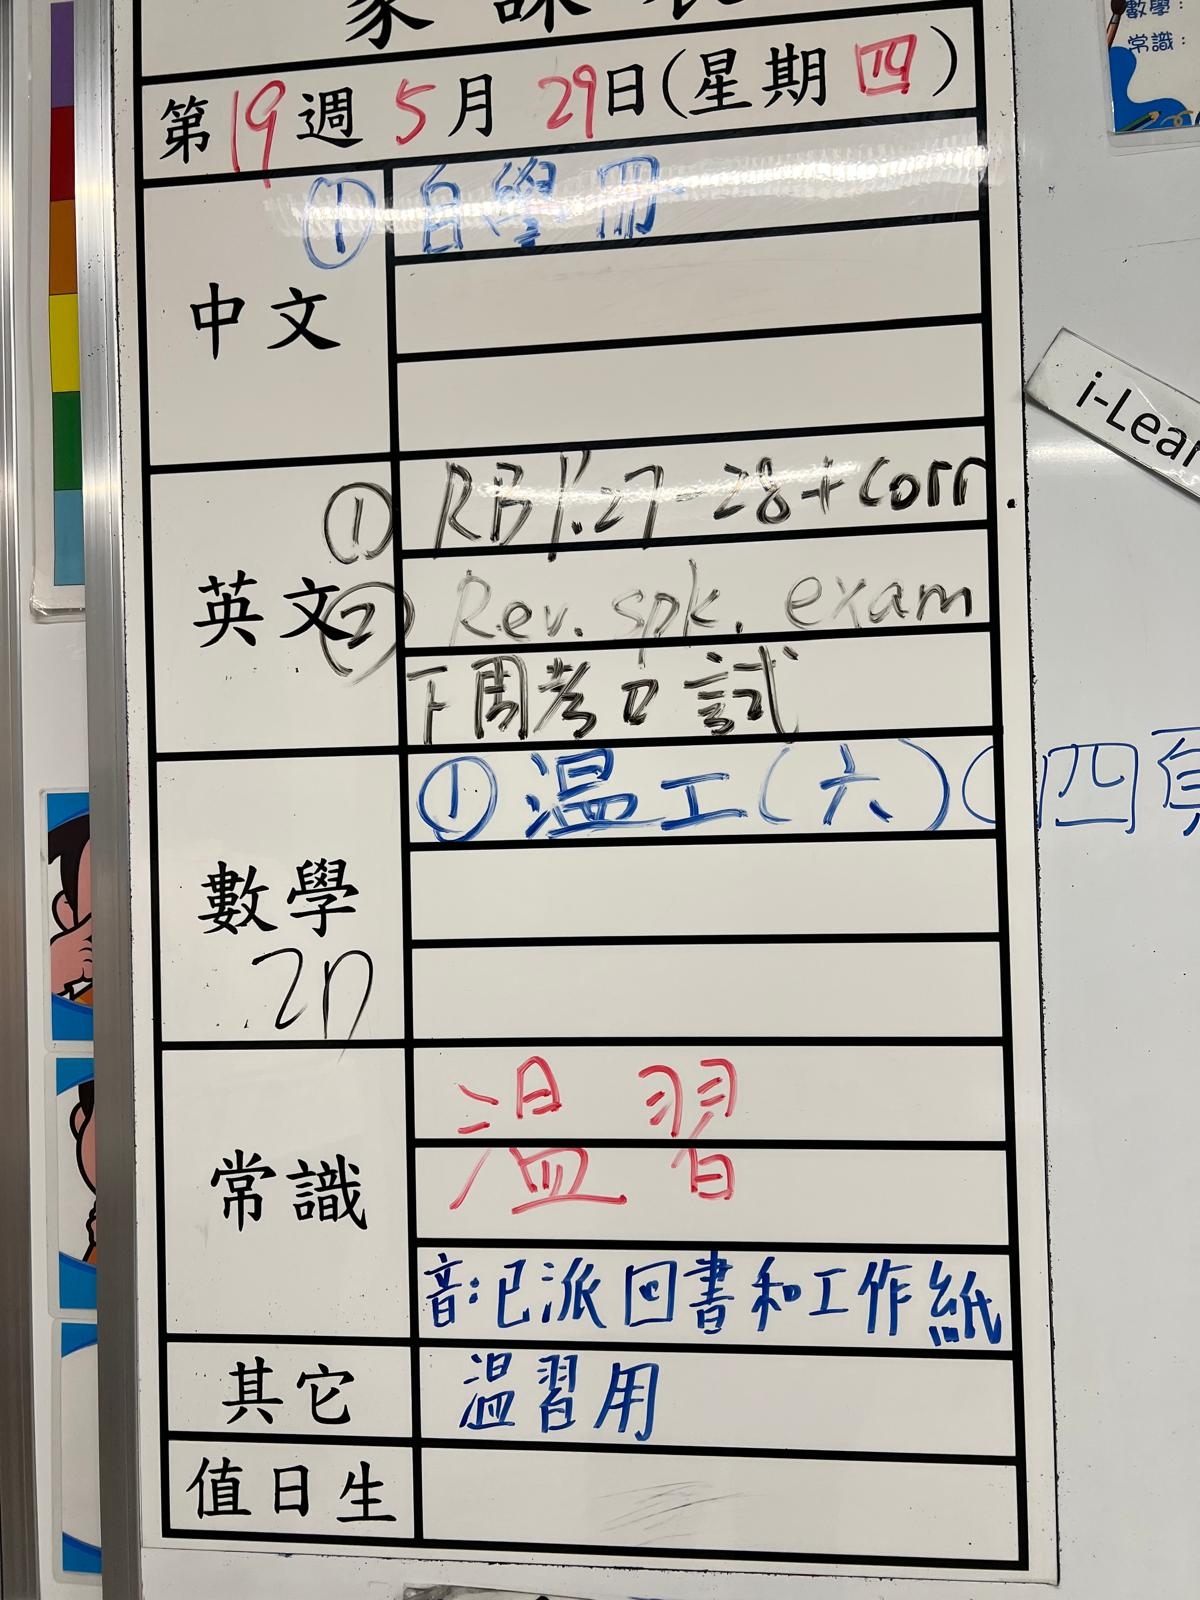 家課表
第19週 5月 29日(星期四)
中文
① 自學冊
英文
① RB P.27-28+corr
② Rev. spk. exam
下周考口試
數學
2n
① 温工(六)(四頁
常識
温習
音:已派回書和工作紙
其它
温習用
值日生
數學:
常識:
i-Lear